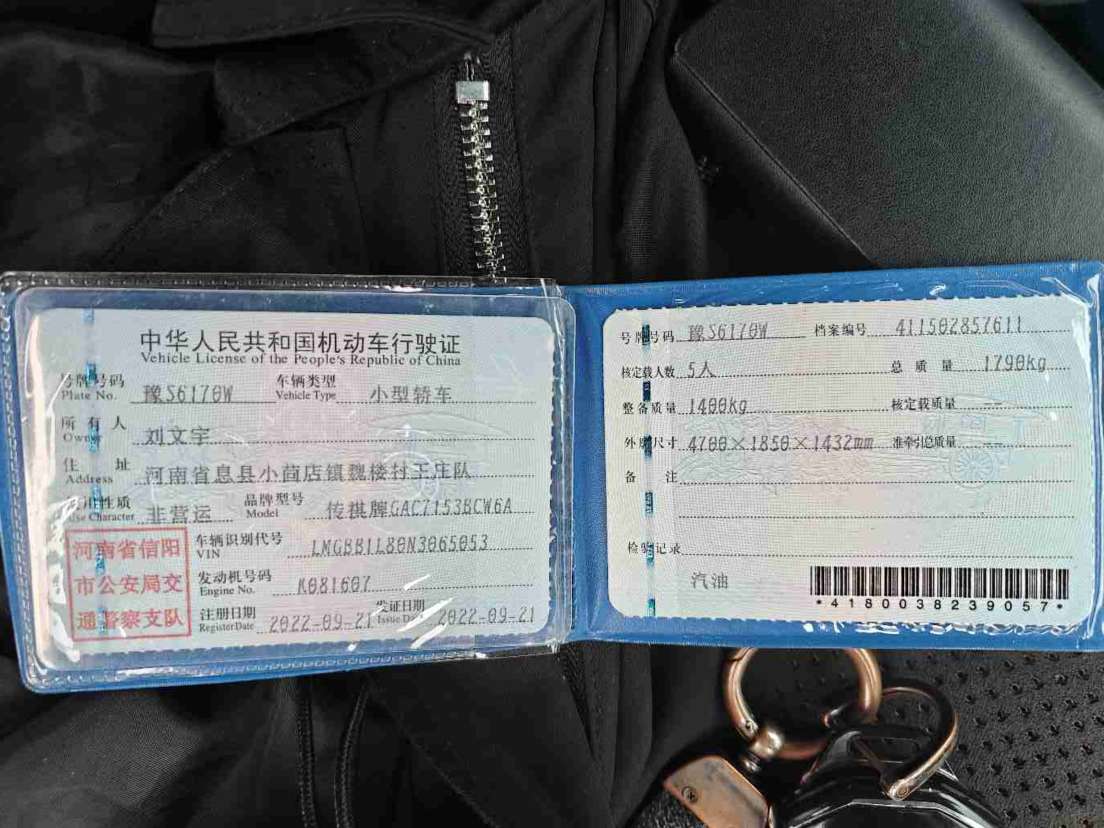 中华人民共和国机动车行驶证
Vehicle License of the People's Republic of China
号牌号码 豫S6170W 车辆类型 小型轿车
Plate No. Vehicle Type
所有人 刘文宇
Owner
住址 河南省息县小茴店镇魏楼村王庄队
Address
使用性质 非营运 品牌型号 传祺牌GAC7153BCW6A
Use Character Model
河南省信阳
市公安局交
通警察支队
车辆识别代号 LMGBB1L80N3065053
VIN
发动机号码 K081607
Engine No.
注册日期 2022-09-21 发证日期 2022-09-21
Register Date Issue Date
号牌号码 豫S6170W 档案编号 411502857611
核定载人数 5人 总质量 1790kg
整备质量 1400kg 核定载质量 --
外廓尺寸 4700×1850×1432mm 准牵引总质量 --
备注
检验记录
汽油
*4180038239057*